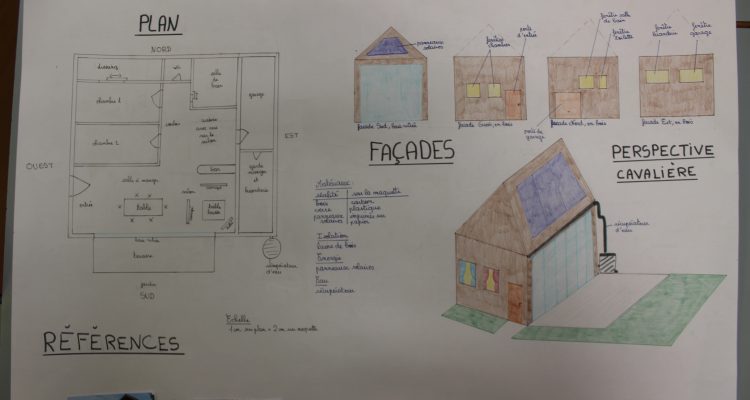 PLAN
NORD
dressing
WC
salle
de
bain
chambre 1
couloir
garage
cuisine
chambre 2
OUEST
EST
salle à manger
bar
table
table
basse
entrée
baie vitrée
terrasse
jardin
SUD
récupérateur
d'eau
Echelle
1 cm sur plan = 2 cm sur maquette
RÉFÉRENCES
panneaux
solaires
façade Sud, baie vitrée
fenêtres
chambres
porte
d'entrée
façade Ouest, en bois
fenêtre salle
de bain
fenêtre
toilette
porte de
garage
façade Nord, en bois
fenêtre
buanderie
fenêtre
garage
façade Est, en bois
FAÇADES
Matériaux :
réalité
sur la maquette
bois
carton
verre
plastique
panneaux
solaires
imprimés sur
papier
Isolation
laine de bois
Energie
panneaux solaires
Eau
récupérateur
PERSPECTIVE
CAVALIÈRE
récupérateur
d'eau